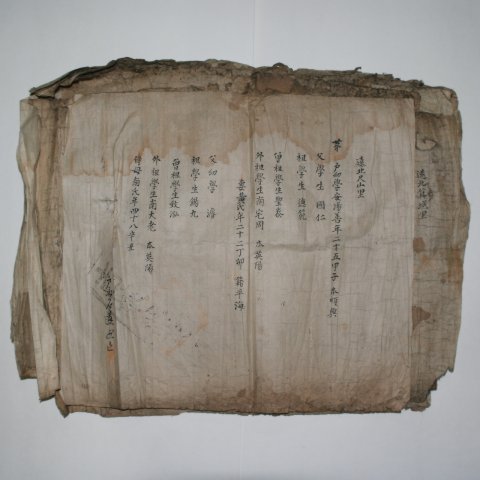 遠北 城里
遠北尺山里
第 戶幼學安 善年二十五甲子 本順興
父學生 國仁
祖學生 達範
曾祖學生聖泰
外祖學生南宅周 本英陽
妻黃氏年二十二丁卯 籍平海
父幼學 濬
祖學生 錫九
曾祖學生致泓
外祖學生南大老 本英陽
侍母南氏年四十八辛丑